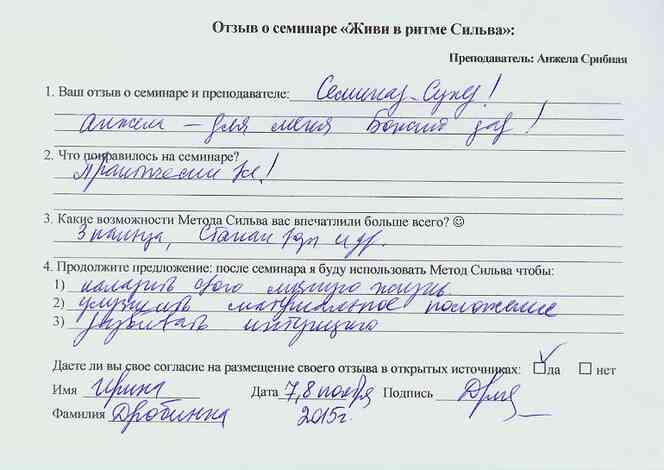 Отзыв о семинаре «Живи в ритме Сильва»:
Преподаватель: Анжела Срибная
1. Ваш отзыв о семинаре и преподавателе: Семинар - Супер!
Анжела - для меня Божий дар!
2. Что понравилось на семинаре?
Практически все!
3. Какие возможности Метода Сильва вас впечатлили больше всего? ☺
3 пальца, Стакан воды и др.
4. Продолжите предложение: после семинара я буду использовать Метод Сильва чтобы:
1) наладить свою личную жизнь
2) улучшить материальное положение
3) развивать интуицию
Даете ли вы свое согласие на размещение своего отзыва в открытых источниках: да нет
Имя Ирина Дата 7,8 ноября Подпись
Фамилия Дробинка 2015г.